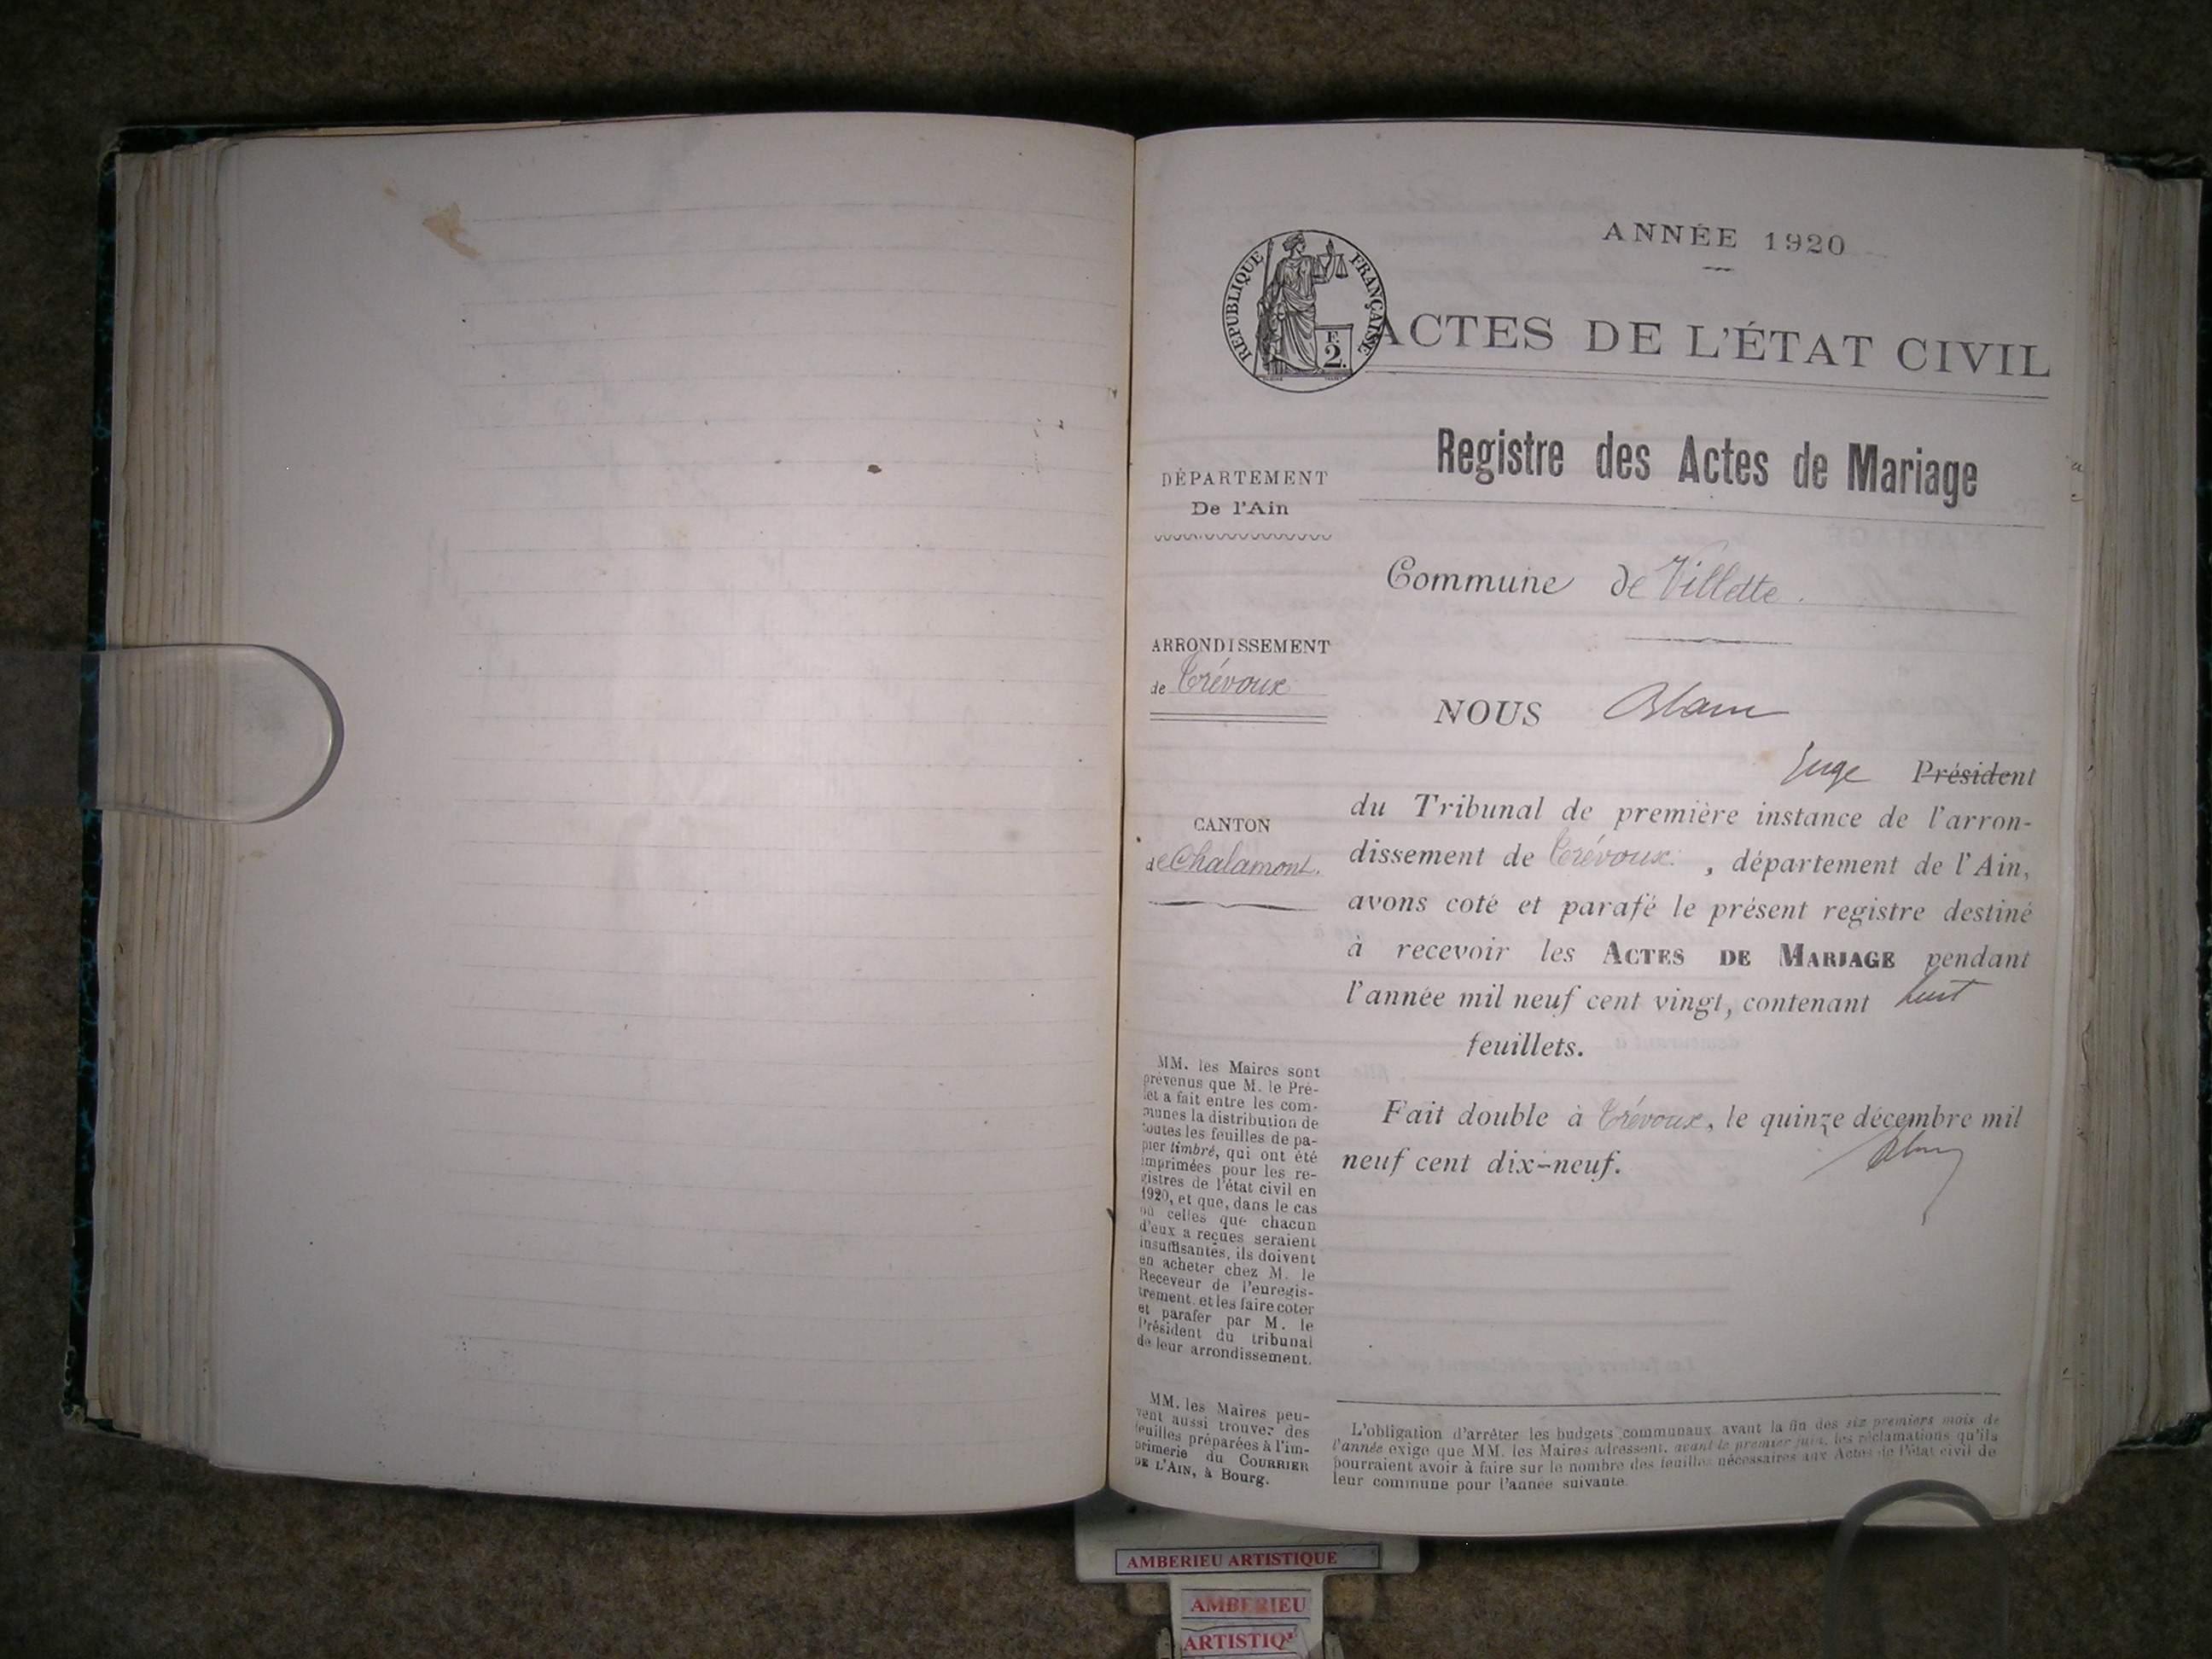 ANNÉE 1920
RÉPUBLIQUE FRANÇAISE
F. 2.
ACTES DE L'ÉTAT CIVIL
Registre des Actes de Mariage
DÉPARTEMENT
De l'Ain
Commune de Villette.
ARRONDISSEMENT
de Trévoux
NOUS
Juge Président
du Tribunal de première instance de l'arron-
CANTON
de Chalamont.
dissement de Trévoux, département de l'Ain,
avons coté et parafé le présent registre destiné
à recevoir les ACTES DE MARIAGE pendant
l'année mil neuf cent vingt, contenant huit
feuillets.
Fait double à Trévoux, le quinze décembre mil
neuf cent dix-neuf.
MM. les Maires sont
prévenus que M. le Pré-
fet a fait entre les com-
munes la distribution de
toutes les feuilles de pa-
pier timbré, qui ont été
imprimées pour les re-
gistres de l'état civil en
1920, et que, dans le cas
où celles que chacun
d'eux a reçues seraient
insuffisantes, ils doivent
en acheter chez M. le
Receveur de l'enregis-
trement, et les faire coter
et parafer par M. le
Président du tribunal
de leur arrondissement.
MM. les Maires peu-
vent aussi trouver des
feuilles préparées à l'im-
primerie du COURRIER
DE L'AIN, à Bourg.
L'obligation d'arrêter les budgets communaux avant la fin des six premiers mois de
l'année exige que MM. les Maires adressent, avant le premier juin, les réclamations qu'ils
pourraient avoir à faire sur le nombre des feuilles nécessaires aux Actes de l'état civil de
leur commune pour l'année suivante.
AMBERIEU ARTISTIQUE
AMBERIEU
ARTISTIQ